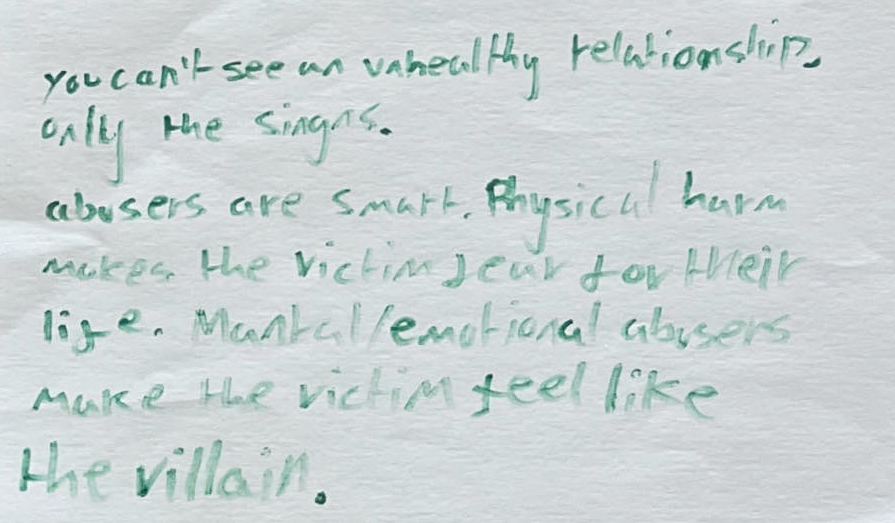 you can't see an unhealthy relationship.
only the singns.
abusers are smart. Physical harm
makes the victim fear for their
life. Mantal/emotional abusers
make the victim feel like
the villain.